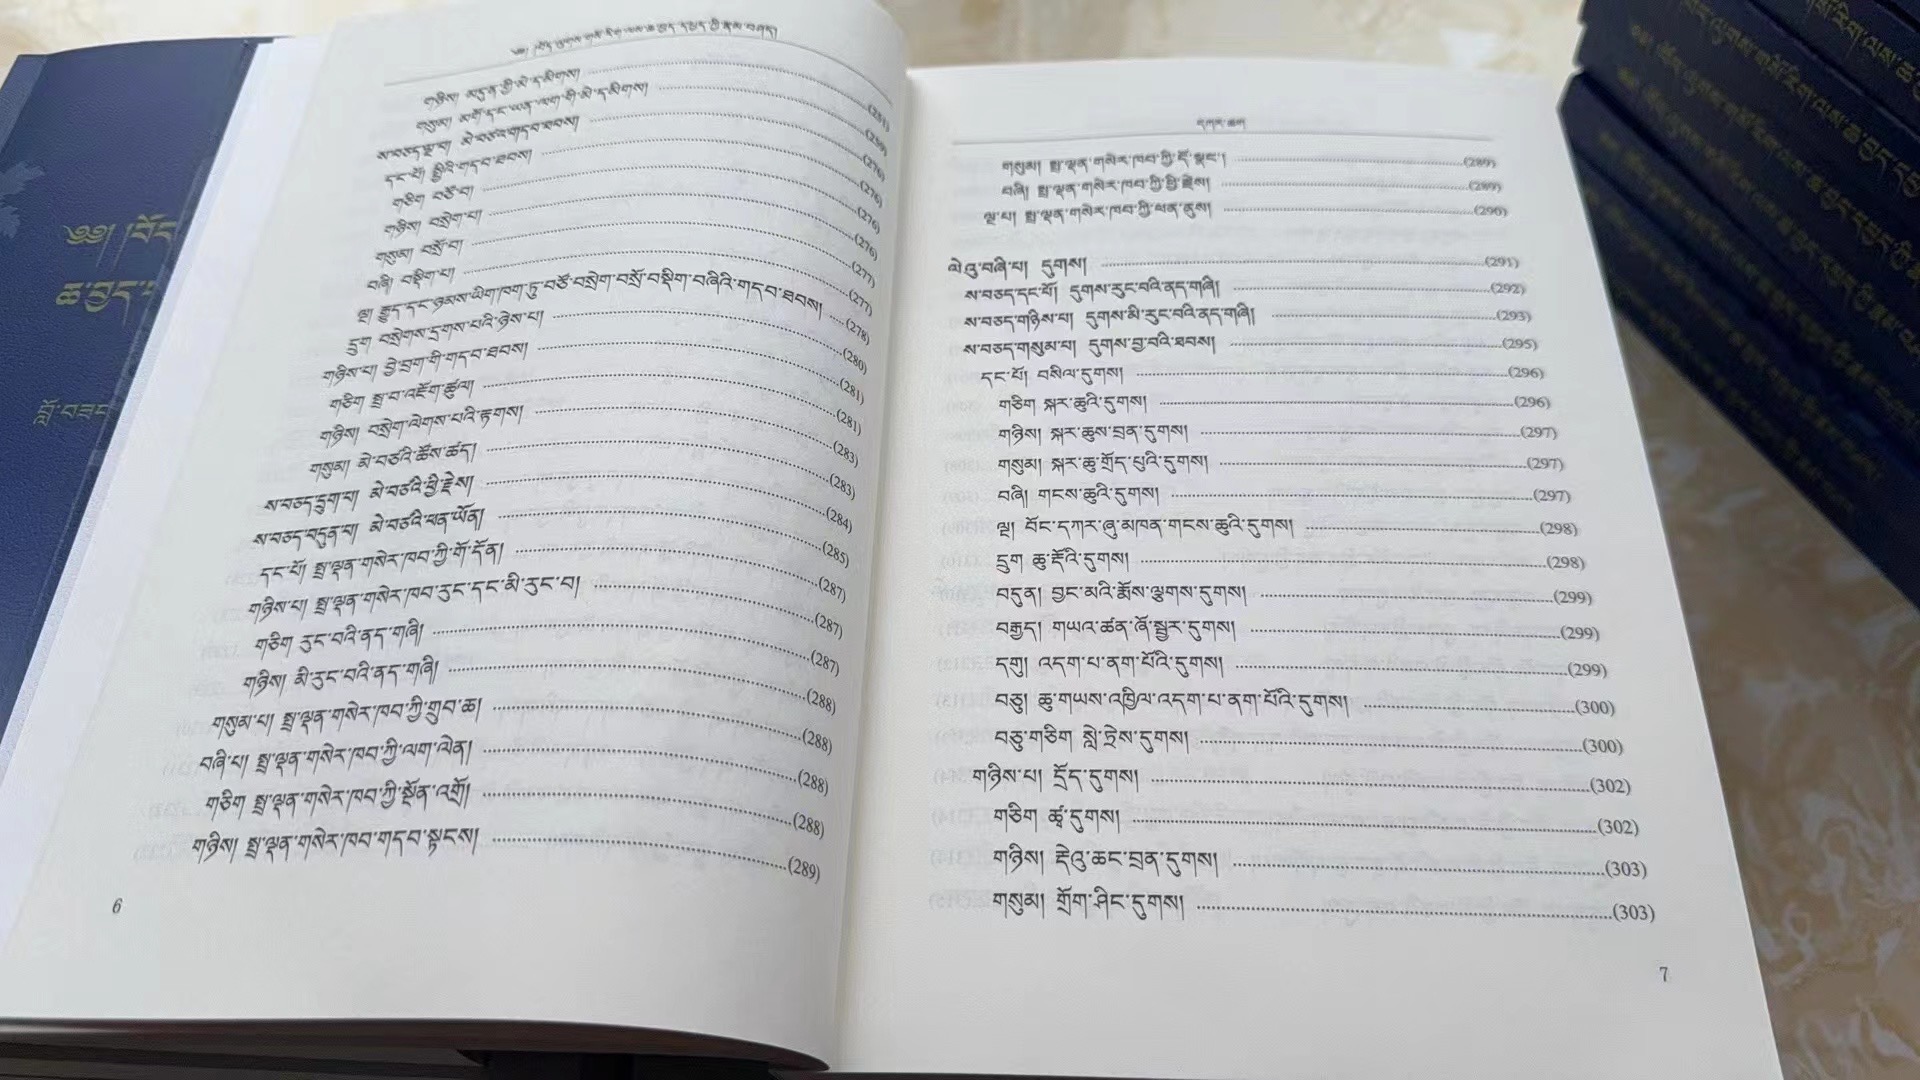 ༄༅། །བོད་ལུགས་གསོ་རིག་ལས་ཆ་བྱད་དཔྱད་ཀྱི་རྣམ་བཤད།
གཉིས། མདུན་གྱི་མེ་དམིགས། (251)
གསུམ། མགོ་དང་ཡན་ལག་གི་མེ་དམིགས། (259)
ས་བཅད་ལྔ་བ། མེ་བཙའ་གདབ་ཐབས། (276)
དང་པོ། སྤྱིའི་གདབ་ཐབས། (276)
གཅིག བཙོ་བ། (276)
གཉིས། བསྲེག་པ། (276)
གསུམ། བསྲོ་བ། (277)
བཞི། བསྡིག་པ། (277)
ལྔ། རྒྱུད་དང་ཉམས་ཡིག་ཁག་ཏུ་བཙོ་བསྲེག་བསྲོ་བསྡིག་བཞིའི་གདབ་ཐབས། (278)
དྲུག བསྲེགས་དྲགས་པའི་ཉེས་པ། (280)
གཉིས་པ། བྱེ་བྲག་གི་གདབ་ཐབས། (281)
གཅིག སྤྲ་བ་འཇོག་ཚུལ། (281)
གཉིས། བསྲེག་ལེགས་པའི་རྟགས། (283)
གསུམ། མེ་བཙའི་ཆོས་ཚད། (283)
ས་བཅད་དྲུག་པ། མེ་བཙའི་ཕྱི་རྗེས། (284)
ས་བཅད་བདུན་པ། མེ་བཙའི་ཕན་ཡོན། (285)
དང་པོ། སྤྲ་ལྡན་གསེར་ཁབ་ཀྱི་གོ་དོན། (287)
གཉིས་པ། སྤྲ་ལྡན་གསེར་ཁབ་རུང་དང་མི་རུང་བ། (287)
གཅིག རུང་བའི་ནད་གཞི། (287)
གཉིས། མི་རུང་བའི་ནད་གཞི། (288)
གསུམ་པ། སྤྲ་ལྡན་གསེར་ཁབ་ཀྱི་གྲུབ་ཆ། (288)
བཞི་པ། སྤྲ་ལྡན་གསེར་ཁབ་ཀྱི་ལག་ལེན། (288)
གཅིག སྤྲ་ལྡན་གསེར་ཁབ་ཀྱི་སྔོན་འགྲོ། (288)
གཉིས། སྤྲ་ལྡན་གསེར་ཁབ་གདབ་སྟངས། (289)
6
དཀར་ཆག
གསུམ། སྤྲ་ལྡན་གསེར་ཁབ་ཀྱི་དོ་སྣང་། (289)
བཞི། སྤྲ་ལྡན་གསེར་ཁབ་ཀྱི་ཕྱི་རྗེས། (289)
ལྔ་པ། སྤྲ་ལྡན་གསེར་ཁབ་ཀྱི་ཕན་ནུས། (290)
ལེའུ་བཞི་པ། དུགས། (291)
ས་བཅད་དང་པོ། དུགས་རུང་བའི་ནད་གཞི། (292)
ས་བཅད་གཉིས་པ། དུགས་མི་རུང་བའི་ནད་གཞི། (293)
ས་བཅད་གསུམ་པ། དུགས་བྱ་བའི་ཐབས། (295)
དང་པོ། བསིལ་དུགས། (296)
གཅིག སྐར་ཆུའི་དུགས། (296)
གཉིས། སྐར་ཆུས་བྲན་དུགས། (297)
གསུམ། སྐར་ཆུ་གྲོད་པུའི་དུགས། (297)
བཞི། གངས་ཆུའི་དུགས། (297)
ལྔ། བོང་དཀར་ཞུ་མཁན་གངས་ཆུའི་དུགས། (298)
དྲུག ཆུ་རྡོའི་དུགས། (298)
བདུན། བྱང་མའི་རྨོས་ལྕགས་དུགས། (299)
བརྒྱད། གཡའ་ཚན་ཞོ་སྦྱར་དུགས། (299)
དགུ། འདག་པ་ནག་པོའི་དུགས། (299)
བཅུ། ཆུ་གཡས་འཁྱིལ་འདག་པ་ནག་པོའི་དུགས། (300)
བཅུ་གཅིག སླེ་ཏྲེས་དུགས། (300)
གཉིས་པ། དྲོད་དུགས། (302)
གཅིག ཚྭ་དུགས། (302)
གཉིས། རྡེའུ་ཆང་བྲན་དུགས། (303)
གསུམ། གྲོག་ཤིང་དུགས། (303)
7